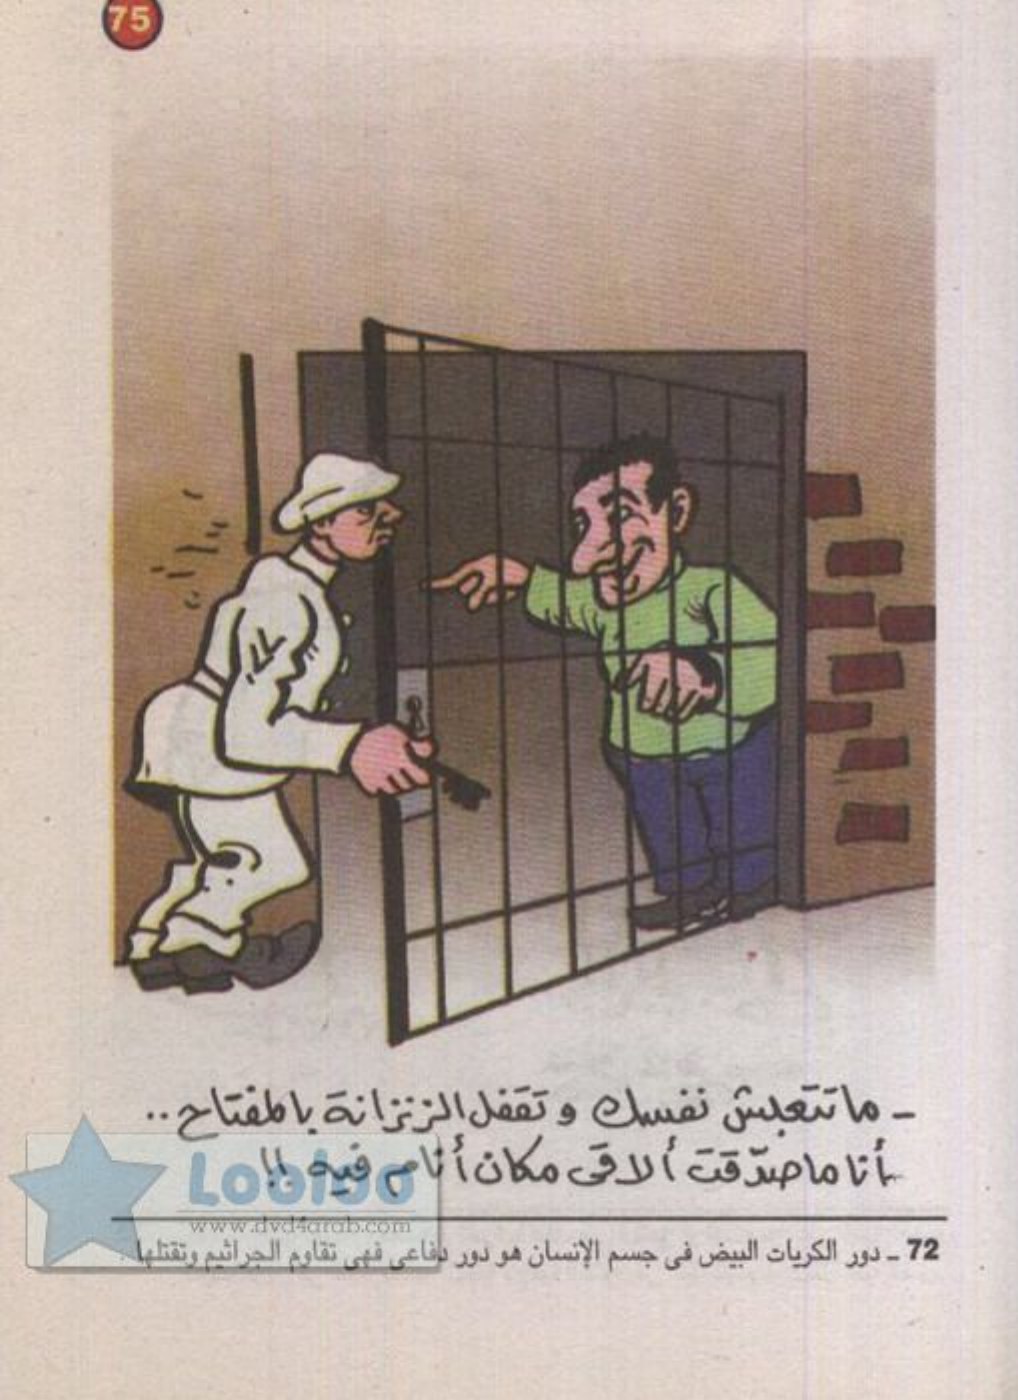 75
ـ ما تتعبش نفسك و تقفل الزنزانة بالمفتاح ..
أنا ما صدّقت ألاقى مكان أنام فيه !!
www.dvd4arab.com
72 ـ دور الكريات البيض فى جسم الإنسان هو دور دفاعى فهى تقاوم الجراثيم وتقتلها .